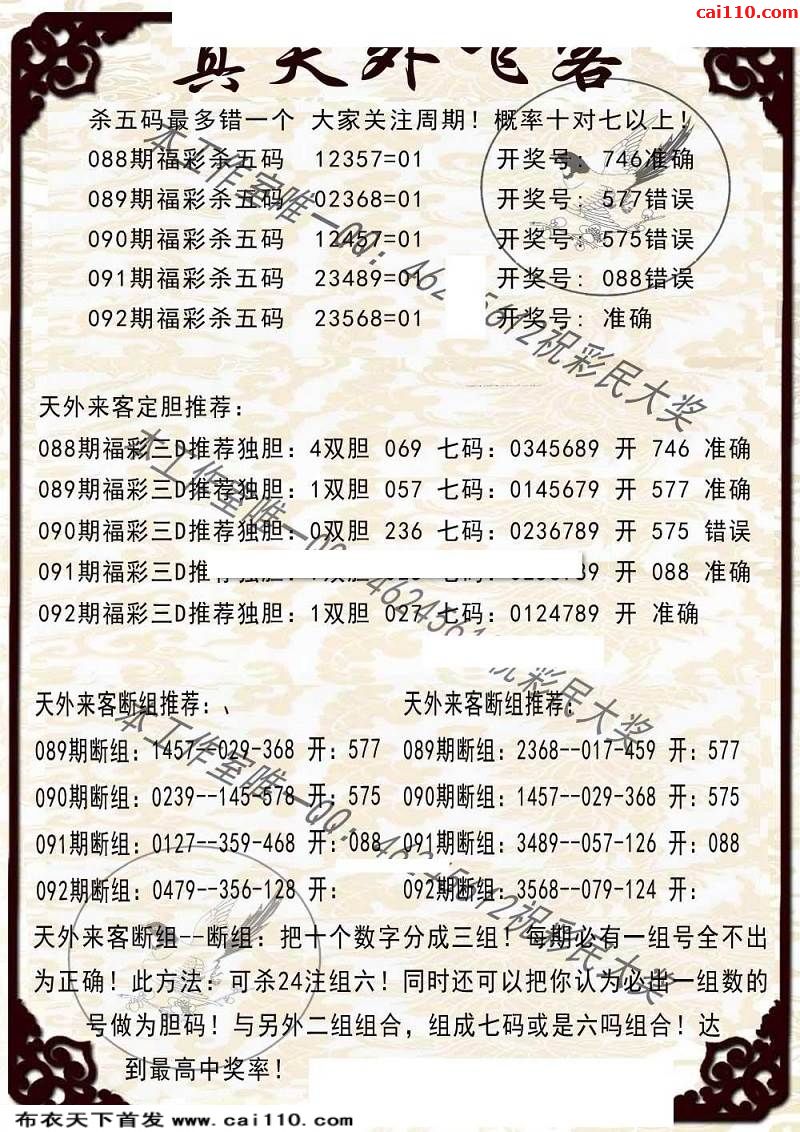 cai110.com
真天外飞客
杀五码最多错一个 大家关注周期！概率十对七以上！
088期福彩杀五码 12357=01 开奖号：746准确
089期福彩杀五码 02368=01 开奖号：577错误
090期福彩杀五码 12457=01 开奖号：575错误
091期福彩杀五码 23489=01 开奖号：088错误
092期福彩杀五码 23568=01 开奖号：准确
天外来客定胆推荐：
088期福彩三D推荐独胆：4双胆 069 七码：0345689 开 746 准确
089期福彩三D推荐独胆：1双胆 057 七码：0145679 开 577 准确
090期福彩三D推荐独胆：0双胆 236 七码：0236789 开 575 错误
091期福彩三D推荐独胆： 双胆 七码： 89 开 088 准确
092期福彩三D推荐独胆：1双胆 027 七码：0124789 开 准确
天外来客断组推荐：、 天外来客断组推荐：
089期断组：1457--029-368 开：577 089期断组：2368--017-459 开：577
090期断组：0239--145-578 开：575 090期断组：1457--029-368 开：575
091期断组：0127--359-468 开：088 091期断组：3489--057-126 开：088
092期断组：0479--356-128 开： 092期断组：3568--079-124 开：
天外来客断组--断组：把十个数字分成三组！每期必有一组号全不出
为正确！此方法：可杀24注组六！同时还可以把你认为必出一组数的
号做为胆码！与另外二组组合，组成七码或是六吗组合！达
到最高中奖率！
本工作室唯一QQ：46245612祝彩民大奖
本工作室唯一QQ：4624561 祝彩民大奖
本工作室唯一QQ：46245612祝彩民大奖
布衣天下首发 www.cai110.com